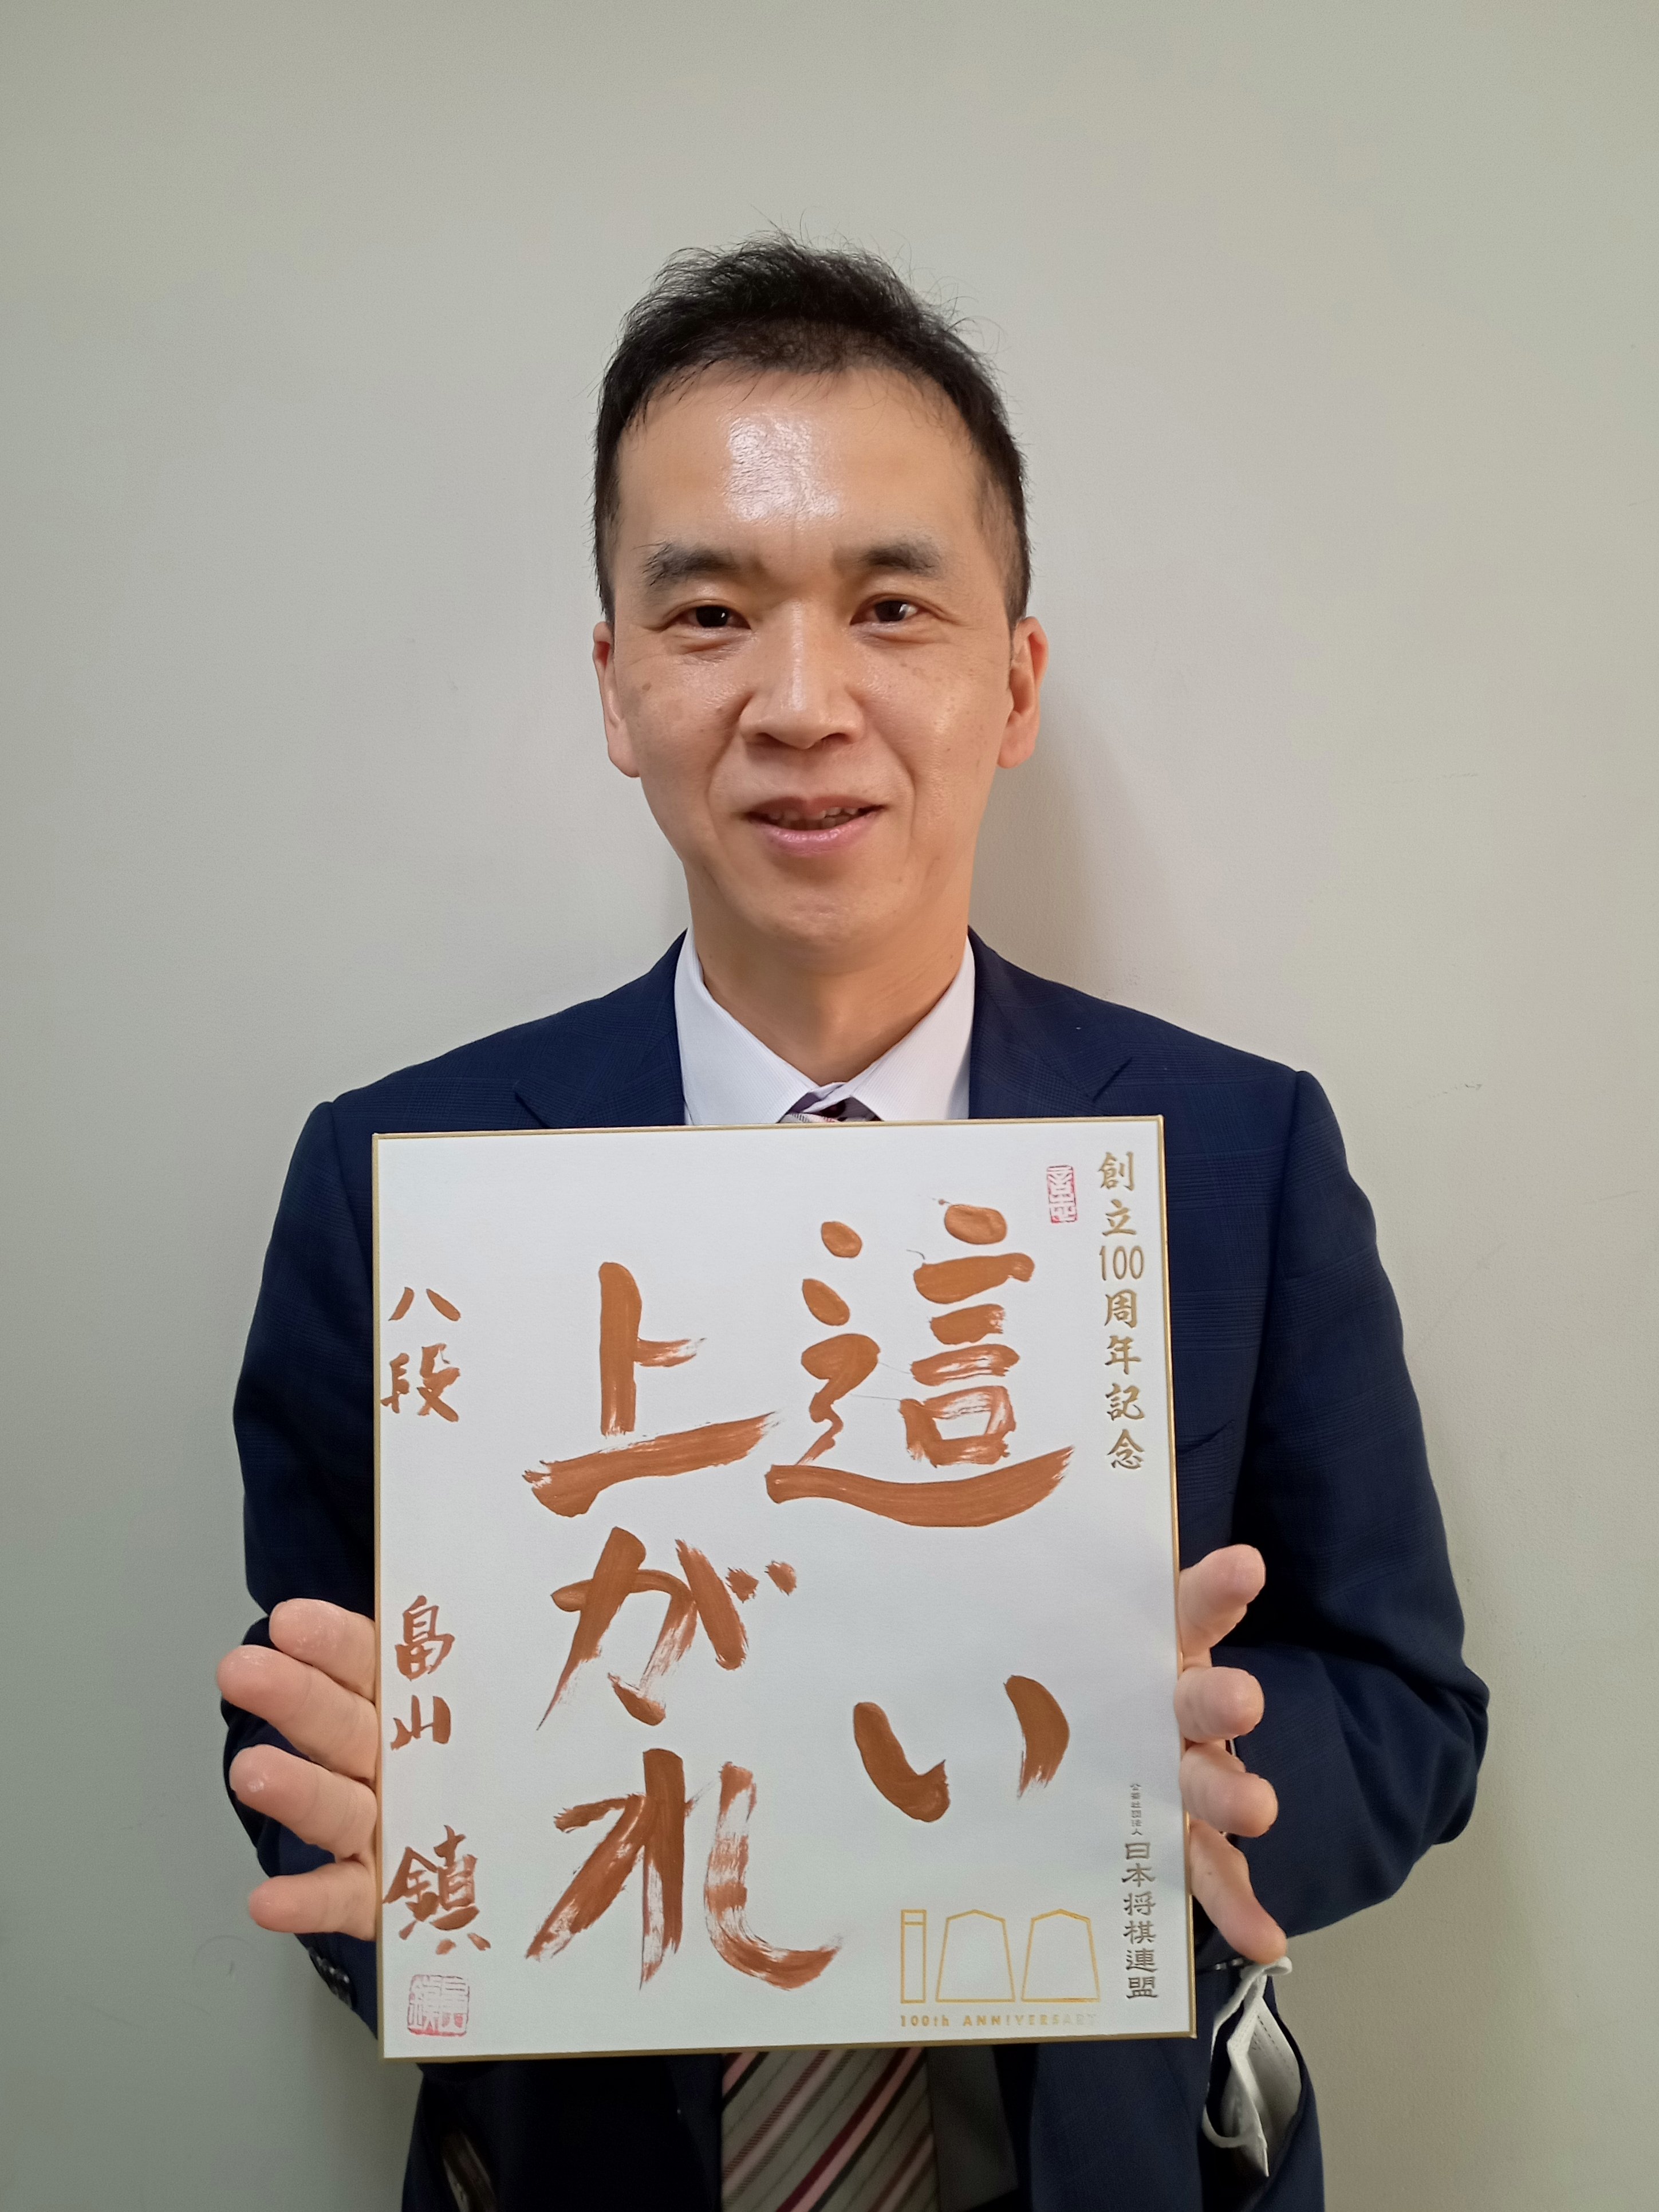 創立100周年記念
這い
上がれ
八段 畠山 鎮
公益社団法人 日本将棋連盟
100
100th ANNIVERSARY